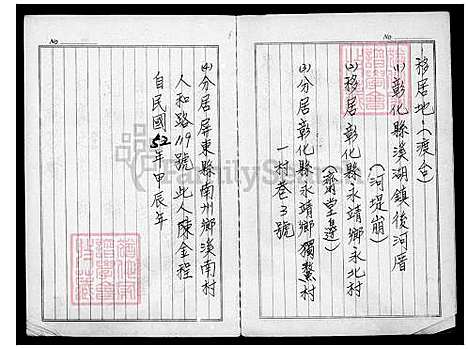 移居地:(渡台)
(1)彰化縣溪湖鎮後河厝
(河堤崩)
(2)移居彰化縣永靖鄉永北村
(齋堂邊)
(3)分居彰化縣永靖鄉獨鰲村
一村巷3號
(4)分居屏東縣南州鄉溪南村
人和路119號 此人陳金程
自民國52年甲辰年
No
No
FamilySearch